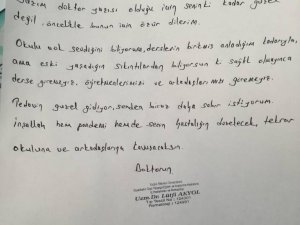 Yazım doktor yazısı olduğu için senin ki kadar güzel
değil, öncelikle bunun için özür dilerim.
Okulu çok sevdiğini biliyorum, derslerin bitmiş anladığım kadarıyla,
ama eski yaşadığın sıkıntılardan biliyorsun ki sağlık olmayınca
derse giremeyiz, öğretmenlerimizi ve arkadaşlarımızı göremeyiz.
Tedavin güzel gidiyor, senden biraz daha sabır istiyorum.
İnşallah hem pandemi hemde senin hastalığın düzelecek, tekrar
okuluna ve arkadaşlarına kavuşacaksın.
Doktorun
Uzm. Dr. Lütfi AKYOL